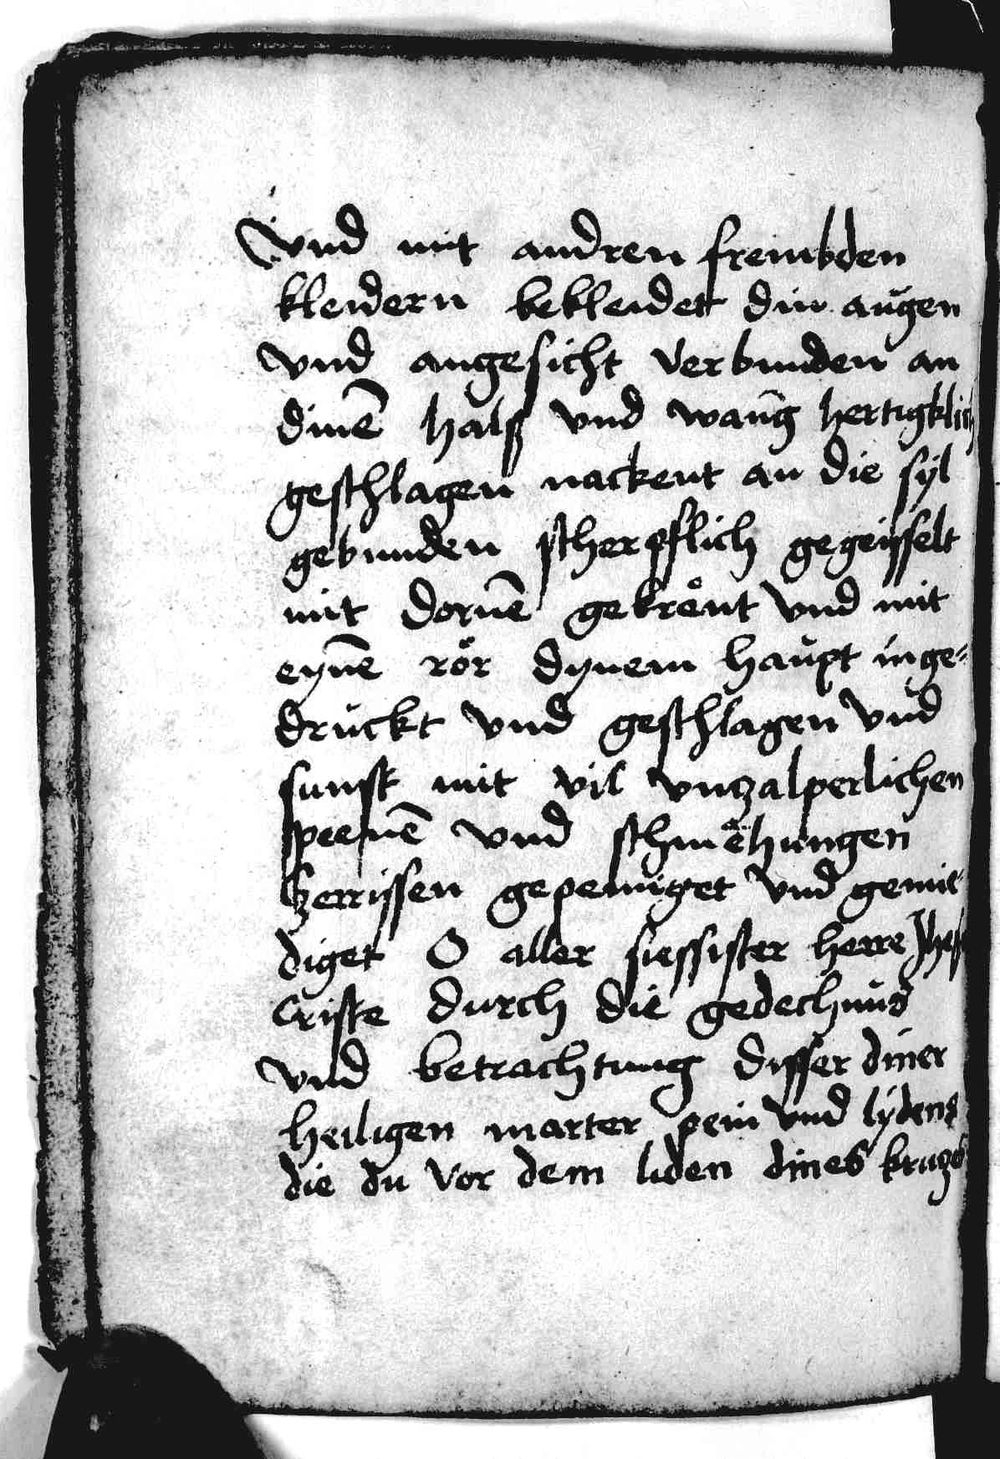 vnd mit andren frembden
kleidern bekleidet din augen
vnd angesicht verbunden an
dinē halß vnd wang hertigklich
geschlagen nackent an die syl
gebunden scherpflich gegeisselt
mit dornē gekrönt vnd mit
eynē rör dynem haupt inge-
druckt vnd geschlagen vnd
sunst mit vil vnzalperlichen
peenē vnd schmehungen
zerrissen gepeiniget vnd gemie-
diget O aller siessister herre Jhesu
Criste durch die gedechnus
vnd betrachtung disser diner
heiligen marter pein vnd lydens
die du vor dem liden dines kruzes